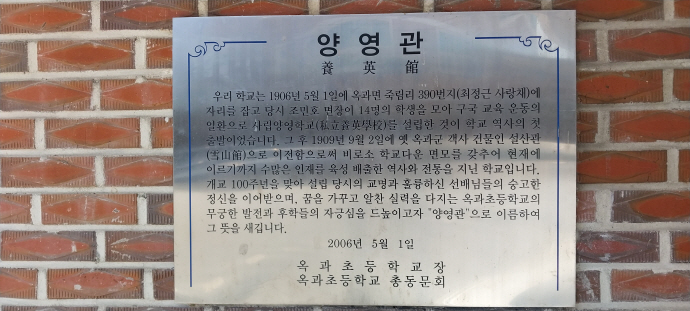 양영관
養英館
우리 학교는 1906년 5월 1일에 옥과면 죽림리 390번지(최정근 사랑채)에
자리를 잡고 당시 조민호 면찰이 14명의 학생을 모아 구국 교육 운동의
일환으로 사립양영학교(私立養英學校)를 설립한 것이 학교 역사의 첫
출발이었습니다. 그 후 1909년 9월 2일에 옛 옥과군 객사 건물인 설산관
(雪山館)으로 이전함으로써 비로소 학교다운 면모를 갖추어 현재에
이르기까지 수많은 인재를 육성 배출한 역사와 전통을 지닌 학교입니다.
개교 100주년을 맞아 설립 당시의 교명과 훌륭하신 선배님들의 숭고한
정신을 이어받으며, 꿈을 가꾸고 알찬 실력을 다지는 옥과초등학교의
무궁한 발전과 후학들의 자긍심을 드높이고자 "양영관"으로 이름하여
그 뜻을 새깁니다.
2006년 5월 1일
옥과초등학교장
옥과초등학교 총동문회